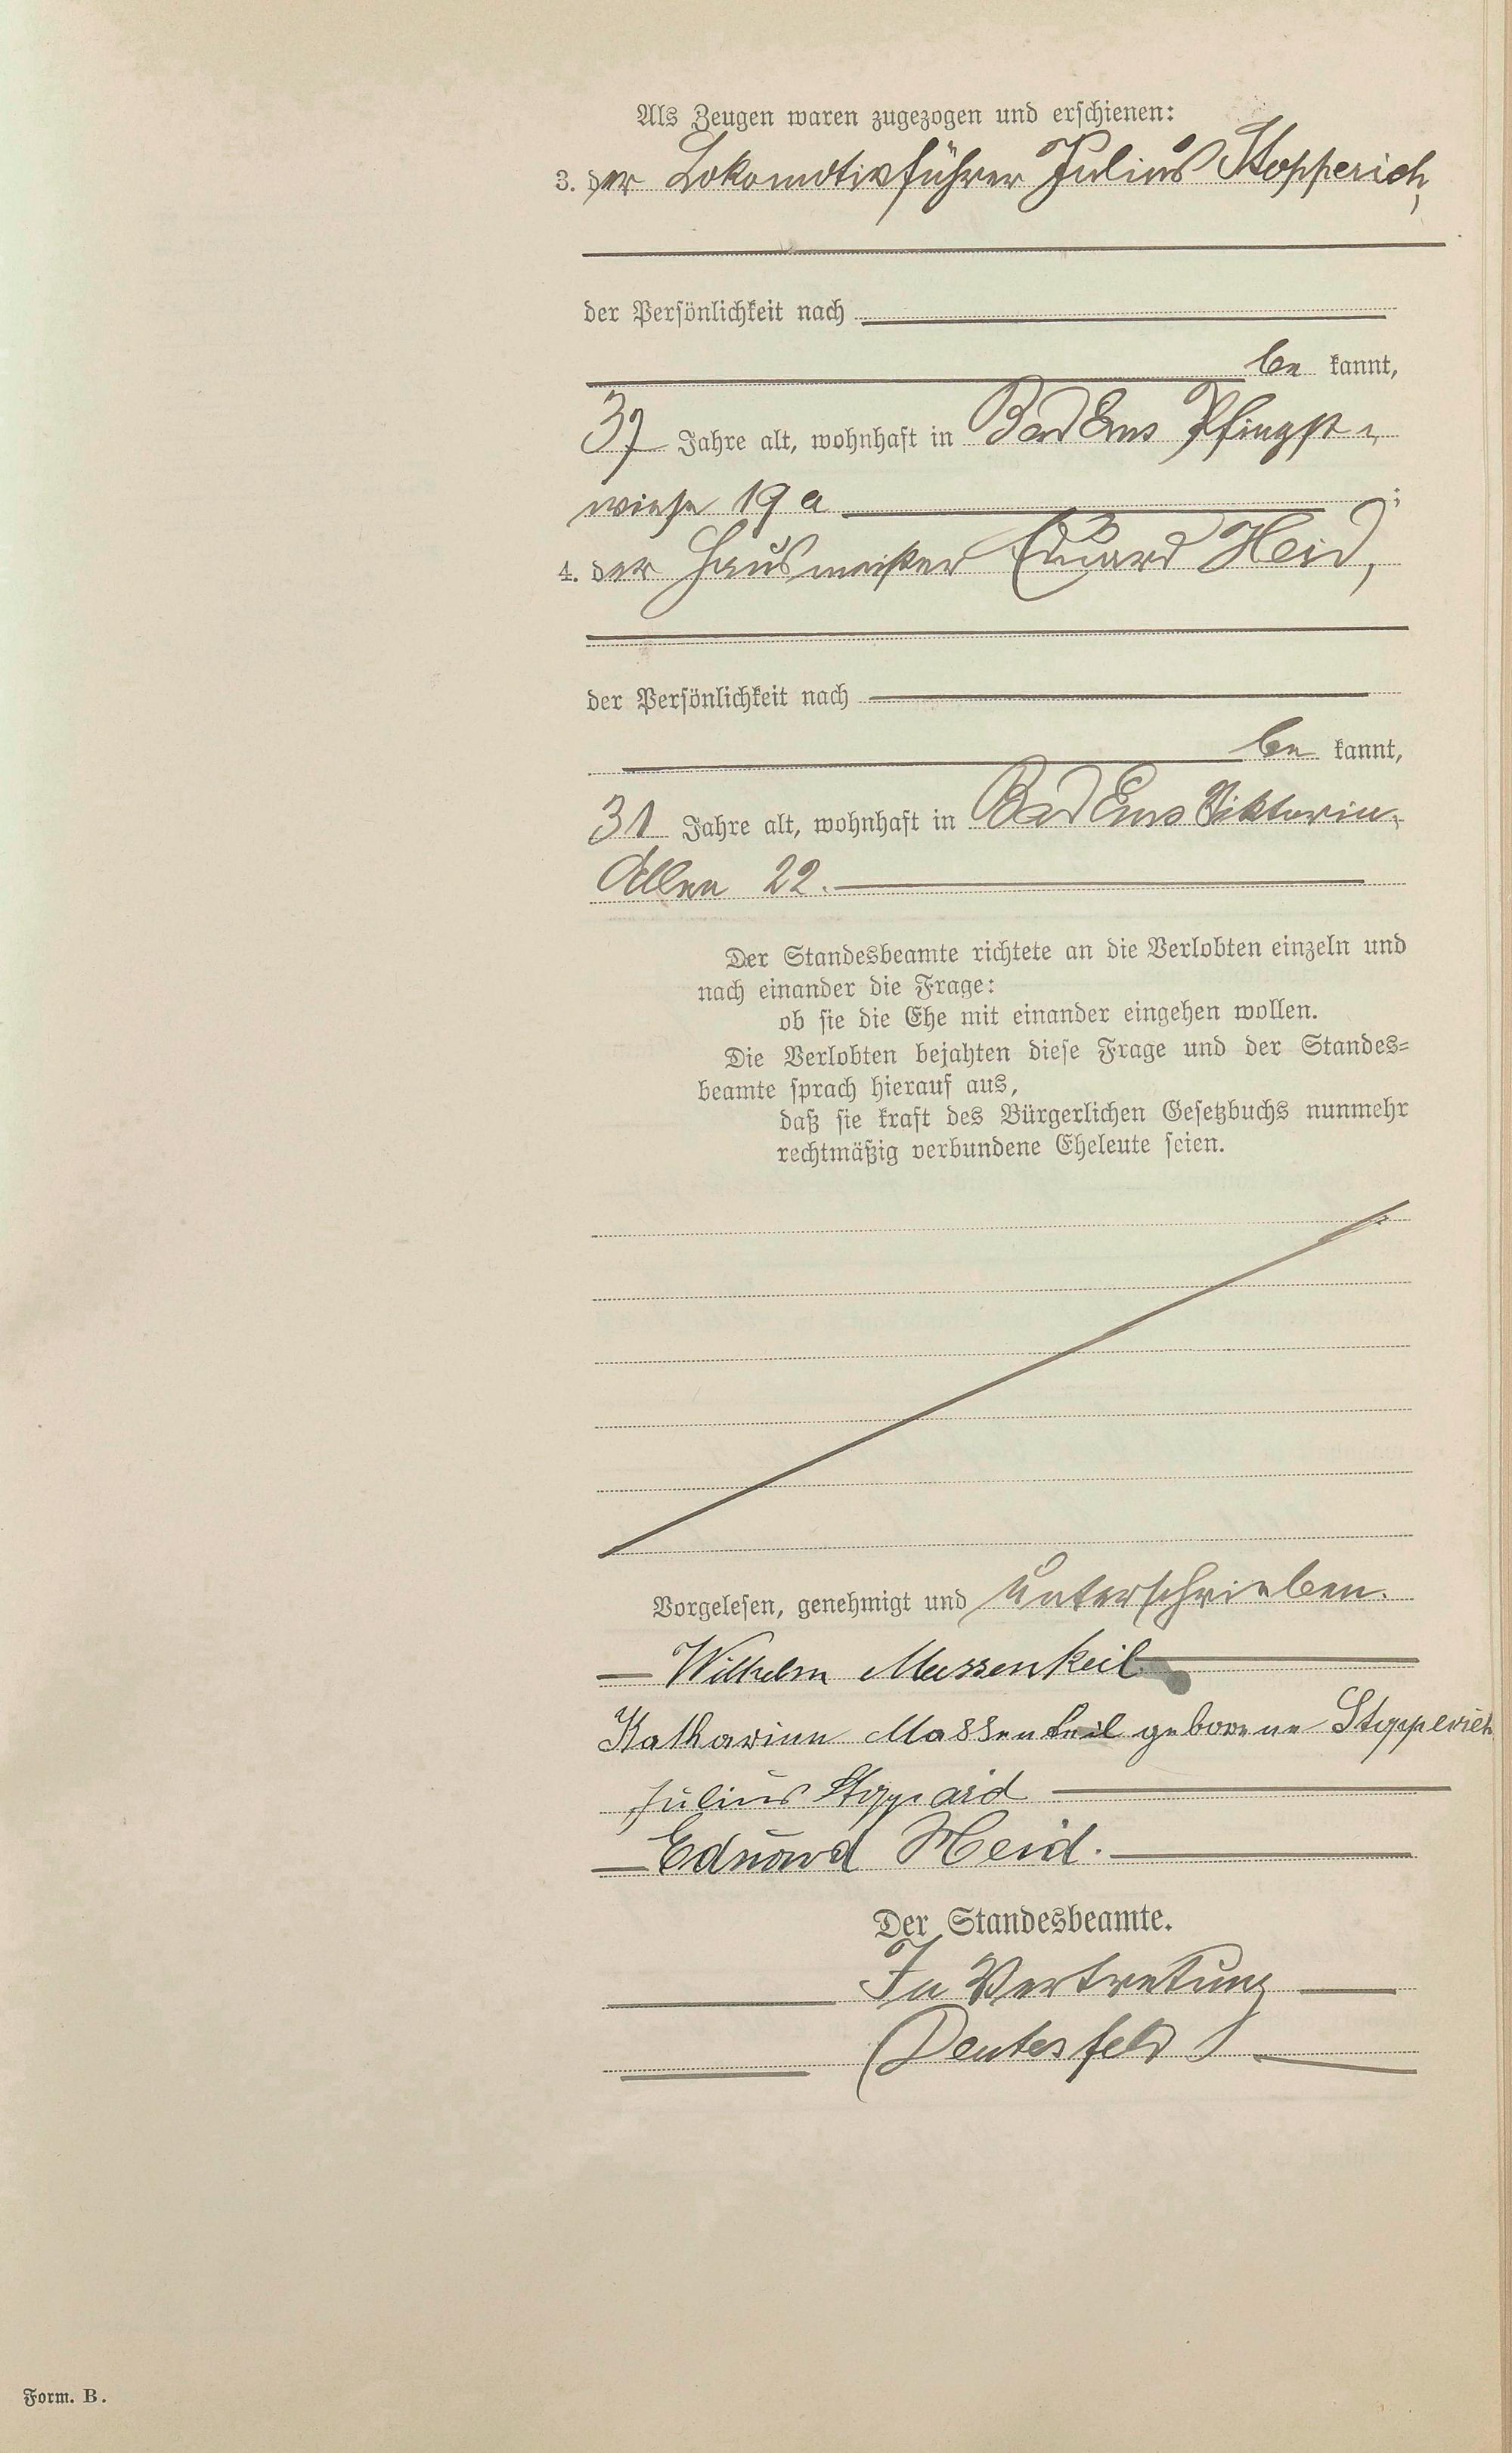 Als Zeugen waren zugezogen und erschienen:
3. der Lokomotivführer Julius Stopperich,
der Persönlichkeit nach
be kannt,
37 Jahre alt, wohnhaft in Bad Ems Pfingst-
wiese 19 a ;
4. der Hausmeister Eduard Heid,
der Persönlichkeit nach
be kannt,
31 Jahre alt, wohnhaft in Bad Ems Viktoria-
Allee 22.
Der Standesbeamte richtete an die Verlobten einzeln und
nach einander die Frage:
ob sie die Ehe mit einander eingehen wollen.
Die Verlobten bejahten diese Frage und der Standes-
beamte sprach hierauf aus,
daß sie kraft des Bürgerlichen Gesetzbuchs nunmehr
rechtmäßig verbundene Eheleute seien.
Vorgelesen, genehmigt und unterschrieben.
Wilhelm Massenkeil
Katharina Massenkeil geborene Stopperich
Julius
Eduard Heid.
Der Standesbeamte.
In Vertretung
Form. B.